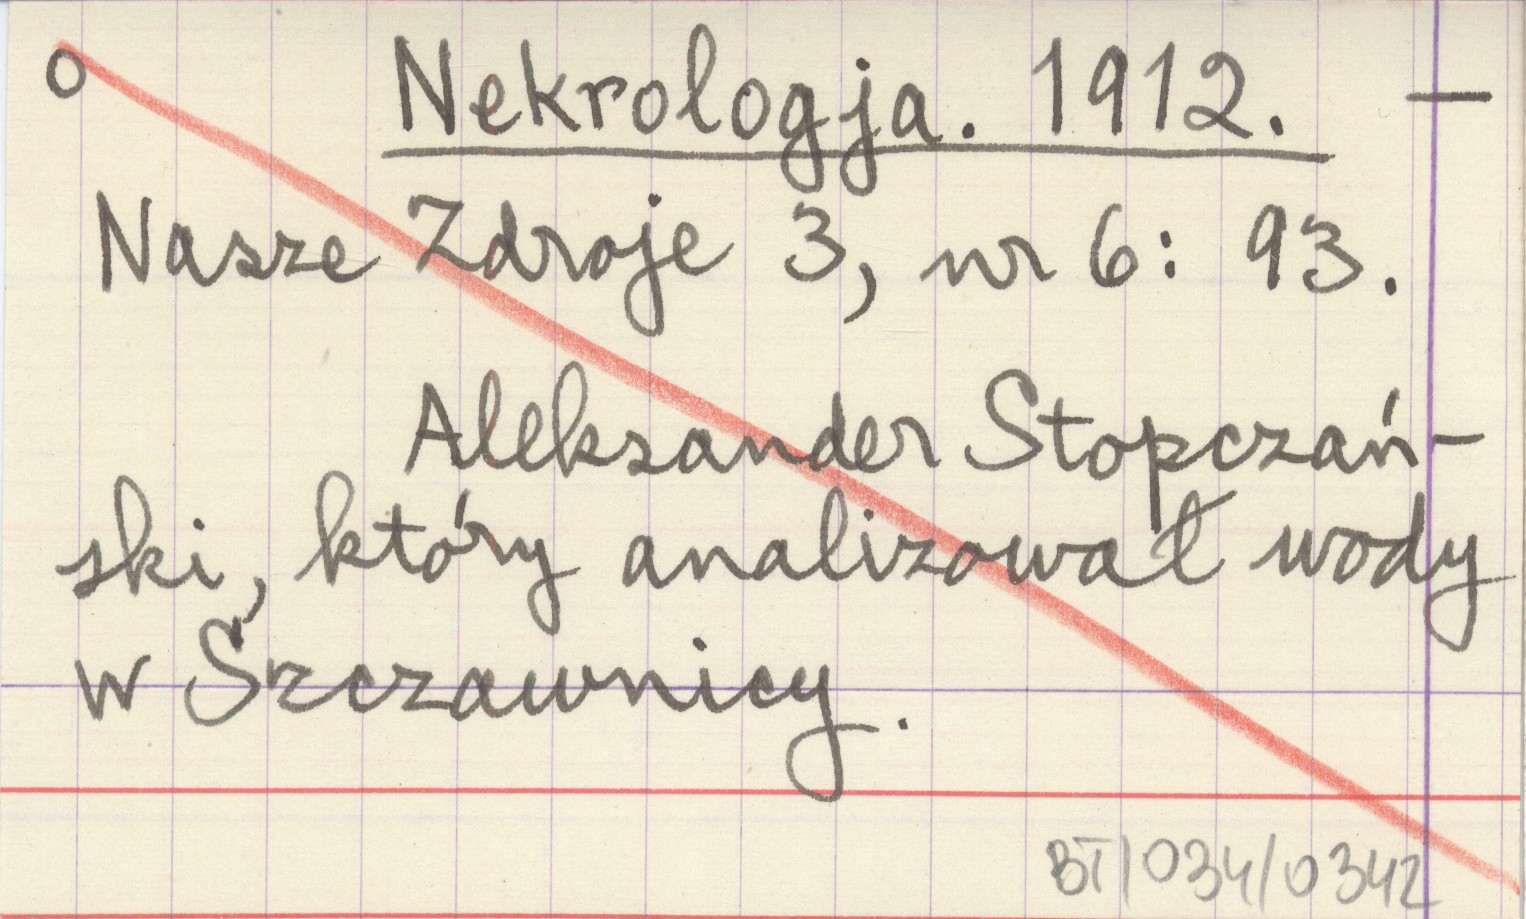 o Nekrologja. 1912. —
Nasze Zdroje 3, nr 6: 93.
Aleksander Stopczań-
ski, który analizował wody
w Szczawnicy.
BT/034/0342